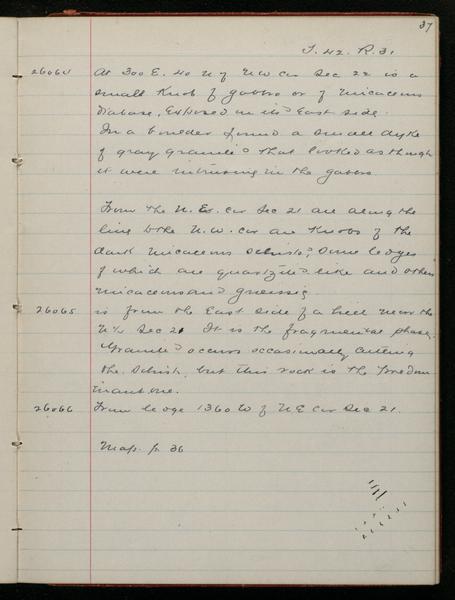 37
T. 42. R. 31
26064 At 300 E. 40 N of N.W. cor Sec 22 is a
small Knob of gabbro or of micaceous
diabase, Exposed on its East side.
In a boulder found a small dyke
of gray granite that looked as though
it were intrusive in the gabbro
From the N. E. cor Sec 21 all along the
line to the N.W. cor are Knobs of the
dark micaceous schists, some ledges
of which are quartzite like and others
micaceous and gneissic
26065 is from the East side of a hill near the
N¼ Sec 21 It is the fragmental phase.
Granite occurs occasionally cutting
the schist, but this rock is the predom
inant one.
26066 From ledge 1360 W of NE cor Sec 21.
Map. p. 36